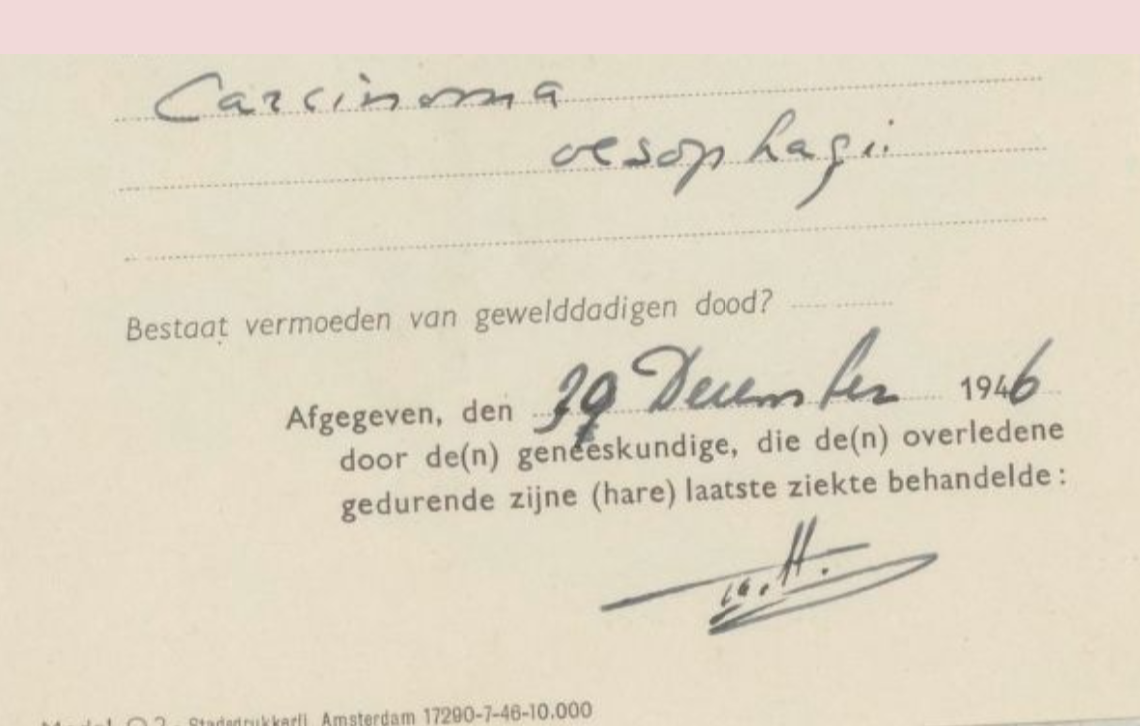 Carcinoma
oesophagii
Bestaat vermoeden van gewelddadigen dood?
Afgegeven, den 29 December 1946
door de(n) geneeskundige, die de(n) overledene
gedurende zijne (hare) laatste ziekte behandelde:
Stadsdrukkerij Amsterdam 17290-7-46-10.000